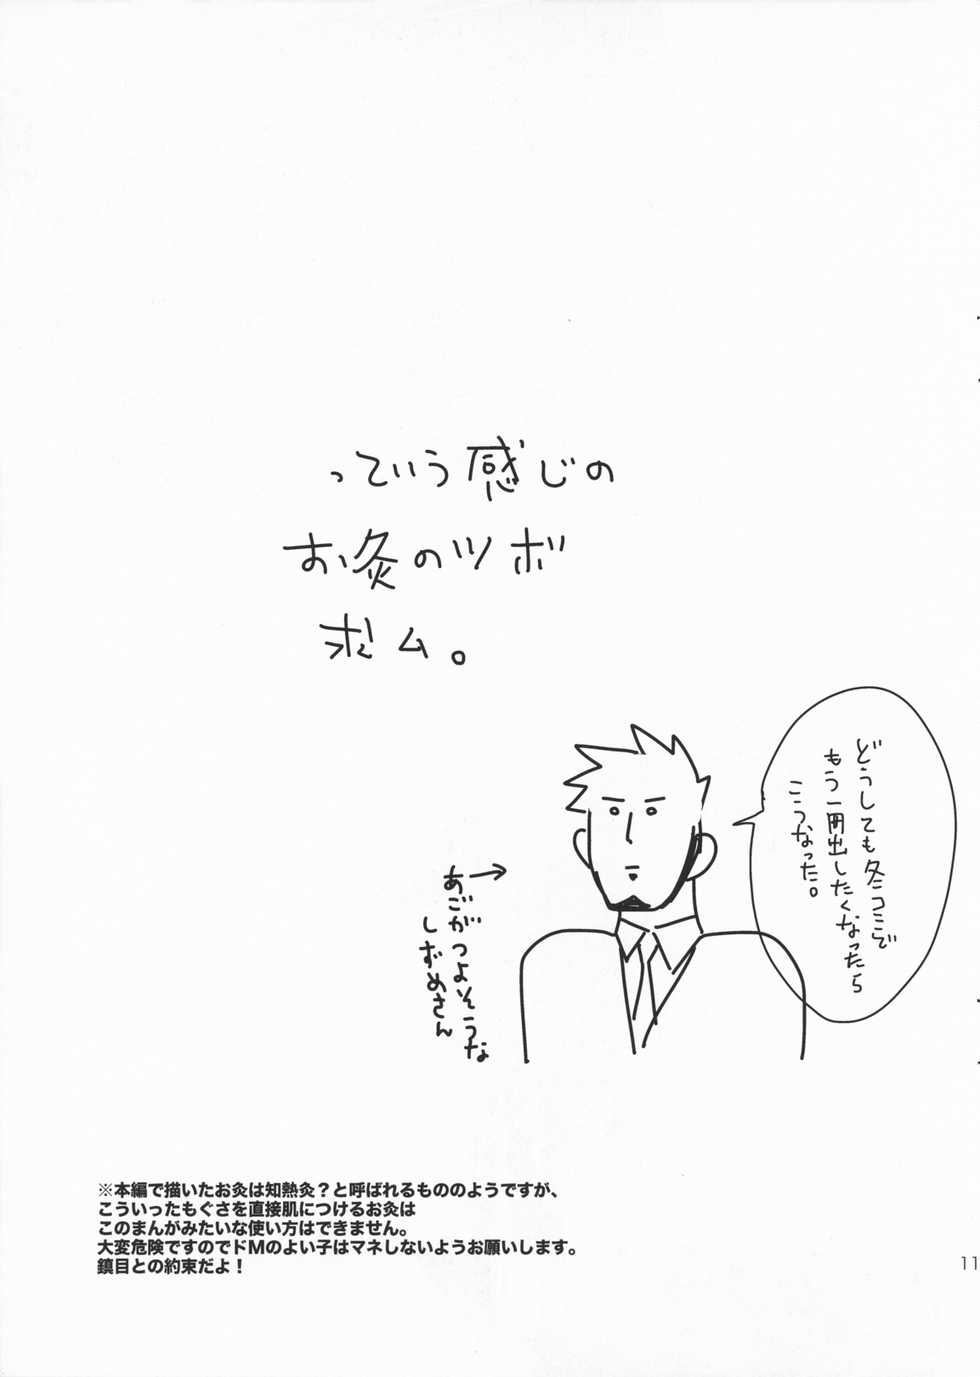 っていう感じの
お灸のツボ
ボム。
どうしても冬コミで
もう一冊出したくなったら
こうなった。
あごがつよそうな
しずめさん
※本編で描いたお灸は知熱灸？と呼ばれるもののようですが、
こういったもぐさを直接肌につけるお灸は
このまんがみたいな使い方はできません。
大変危険ですのでドMのよい子はマネしないようお願いします。
鎮目との約束だよ！
11